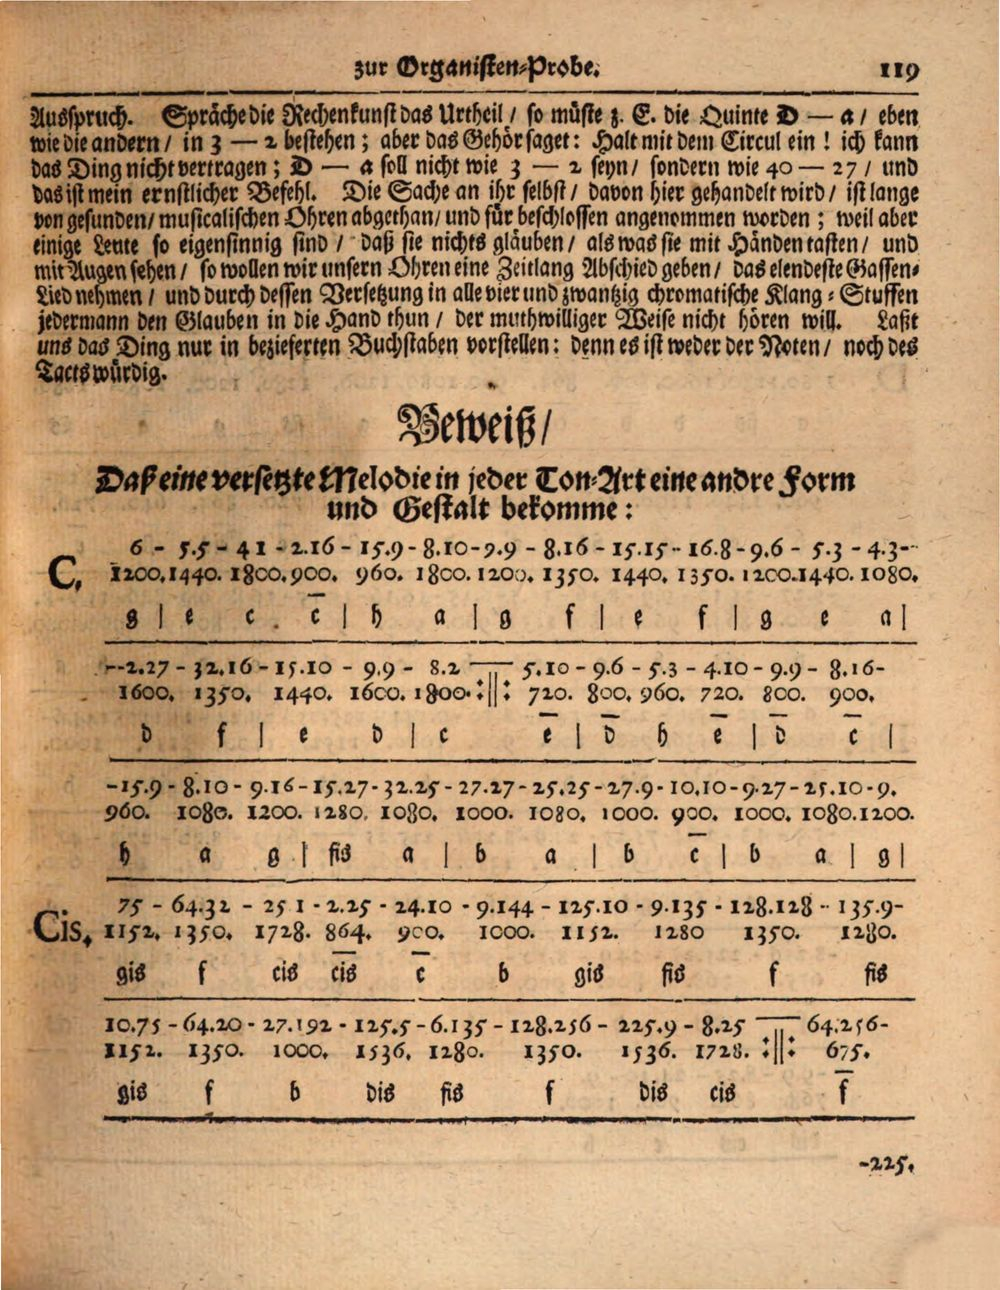 zur Organisten-Probe. 119
Ausspruch. Spräche die Rechenkunst das Urtheil / so müste z. E. die Quinte D — a / eben
wie die andern / in 3 — 2 bestehen; aber das Gehör saget: Halt mit dem Circul ein! ich kann
das Ding nicht vertragen; D — a soll nicht wie 3 — 2 seyn / sondern wie 40 — 27 / und
das ist mein ernstlicher Befehl. Die Sache an ihr selbst / davon hier gehandelt wird / ist lange
von gesunden / musicalischen Ohren abgethan / und für beschlossen angenommen worden; weil aber
einige Leute so eigensinnig sind / daß sie nichts gläuben / als was sie mit Händen tasten / und
mit Augen sehen / so wollen wir unsern Ohren eine Zeitlang Abschied geben / das elendeste Gassen-
Lied nehmen / und durch dessen Versetzung in alle vier und zwantzig chromatische Klang-Stuffen
jedermann den Glauben in die Hand thun / der muthwilliger Weise nicht hören will. Laßt
uns das Ding nur in bezieferten Buchstaben vorstellen: denn es ist weder der Noten / noch des
Tacts würdig.
Beweiß /
Daß eine versetzte Melodie in jeder Ton-Art eine andre Form
und Gestalt bekomme:
6 - 5.5 - 4 1 - 2.16 - 15.9 - 8.10 - 9.9 - 8.16 - 15.15 - 16.8 - 9.6 - 5.3 - 4.3 -
C, 1200. 1440. 1800. 900. 960. 1800. 1200. 1350. 1440. 1350. 1200. 1440. 1080.
g | e c c̅ | h a | g f | e f | g e a |
--2.27 - 32.16 - 15.10 - 9.9 - 8.2 5.10 - 9.6 - 5.3 - 4.10 - 9.9 - 8.16 -
1600. 1350. 1440. 1600. 1800. :||: 720. 800. 960. 720. 800. 900.
d f | e d | c e̅ | d̅ h e̅ | d̅ c̅ |
-15.9 - 8.10 - 9.16 - 15.27 - 32.25 - 27.27 - 25.25 - 27.9 - 10.10 - 9.27 - 25.10 - 9.
960. 1080. 1200. 1280. 1080. 1000. 1080. 1000. 900. 1000. 1080. 1200.
h a g | fis a | b a | b c̅ | b a | g |
75 - 64.32 - 25 1 - 2.25 - 24.10 - 9.144 - 125.10 - 9.135 - 128.128 - 135.9 -
Cis, 1152. 1350. 1728. 864. 900. 1000. 1152. 1280 1350. 1280.
gis f cis c̅i̅s̅ c̅ b gis fis f fis
10.75 - 64.20 - 27.192 - 125.5 - 6.135 - 128.256 - 225.9 - 8.25 64.256 -
1152. 1350. 1000. 1536. 1280. 1350. 1536. 1728. :||: 675.
gis f b dis fis f dis cis f̅
-225.